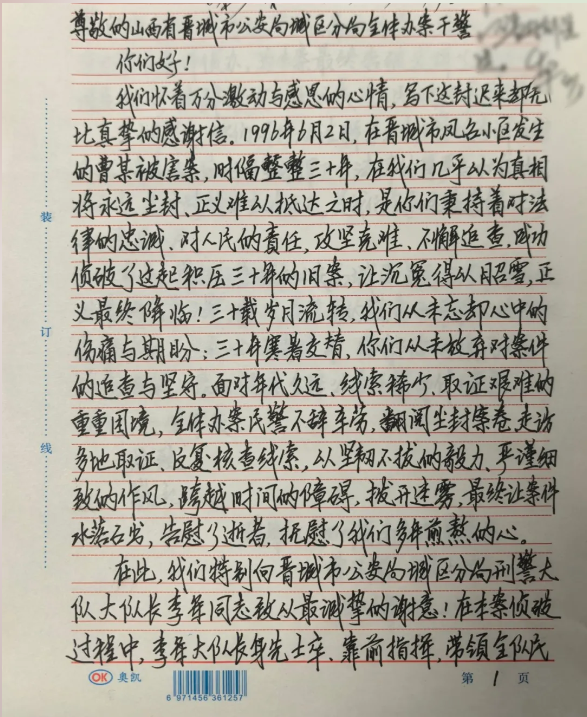 尊敬的山西省晋城市公安局城区分局全体办案干警
你们好！
我们怀着万分激动与感恩的心情，写下这封迟来却无
比真挚的感谢信。1996年6月2日，在晋城市凤台小区发生
的曹某被害案，时隔整整三十年，在我们几乎以为真相
将永远尘封、正义难以抵达之时，是你们秉持着对法
律的忠诚、对人民的责任，攻坚克难、不懈追查，成功
侦破了这起积压三十年的旧案，让沉冤得以昭雪，正
义最终降临！三十载岁月流转，我们从未忘却心中的
伤痛与期盼；三十年寒暑交替，你们从未放弃对案件
的追查与坚守。面对年代久远、线索稀少、取证艰难的
重重困境，全体办案民警不辞辛劳，翻阅尘封案卷、走访
多地取证、反复核查线索，以坚韧不拔的毅力、严谨细
致的作风，跨越时间的障碍，拨开迷雾，最终让案件
水落石出，告慰了逝者，抚慰了我们多年煎熬的心。
在此，我们特别向晋城市公安局城区分局刑警大
队大队长李军同志致以最诚挚的谢意！在本案侦破
过程中，李军大队长身先士卒、靠前指挥，带领全队民
装
订
线
OK 奥凯
6 971456 361257
第 1 页